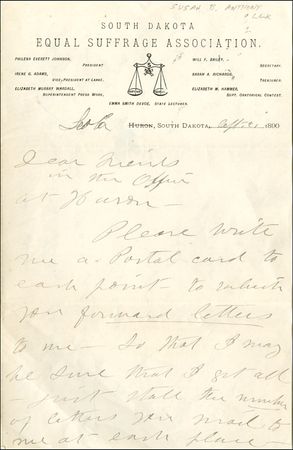 SUSAN B. ANTHONY
SOUTH DAKOTA
EQUAL SUFFRAGE ASSOCIATION.
PHILENA EVERETT JOHNSON,
PRESIDENT
IRENE G. ADAMS,
VICE-PRESIDENT AT LARGE.
ELIZABETH MURRAY WARDALL,
SUPERINTENDENT PRESS WORK,
WILL F. BAILEY,
SECRETARY
SARAH A. RICHARDS,
TREASURER
ELIZABETH M. HAMMER,
SUPT. ORATORICAL CONTEST.
EMMA SMITH DEVOE, STATE LECTURER.
HURON, SOUTH DAKOTA, 1890
Dear Friends
in the Office
at Huron —
Please write
me a Postal card to
each point — to which
you forward letters
to me — So that I may
be sure that I get all
— just state the number
of letters you mail to
me at each place —